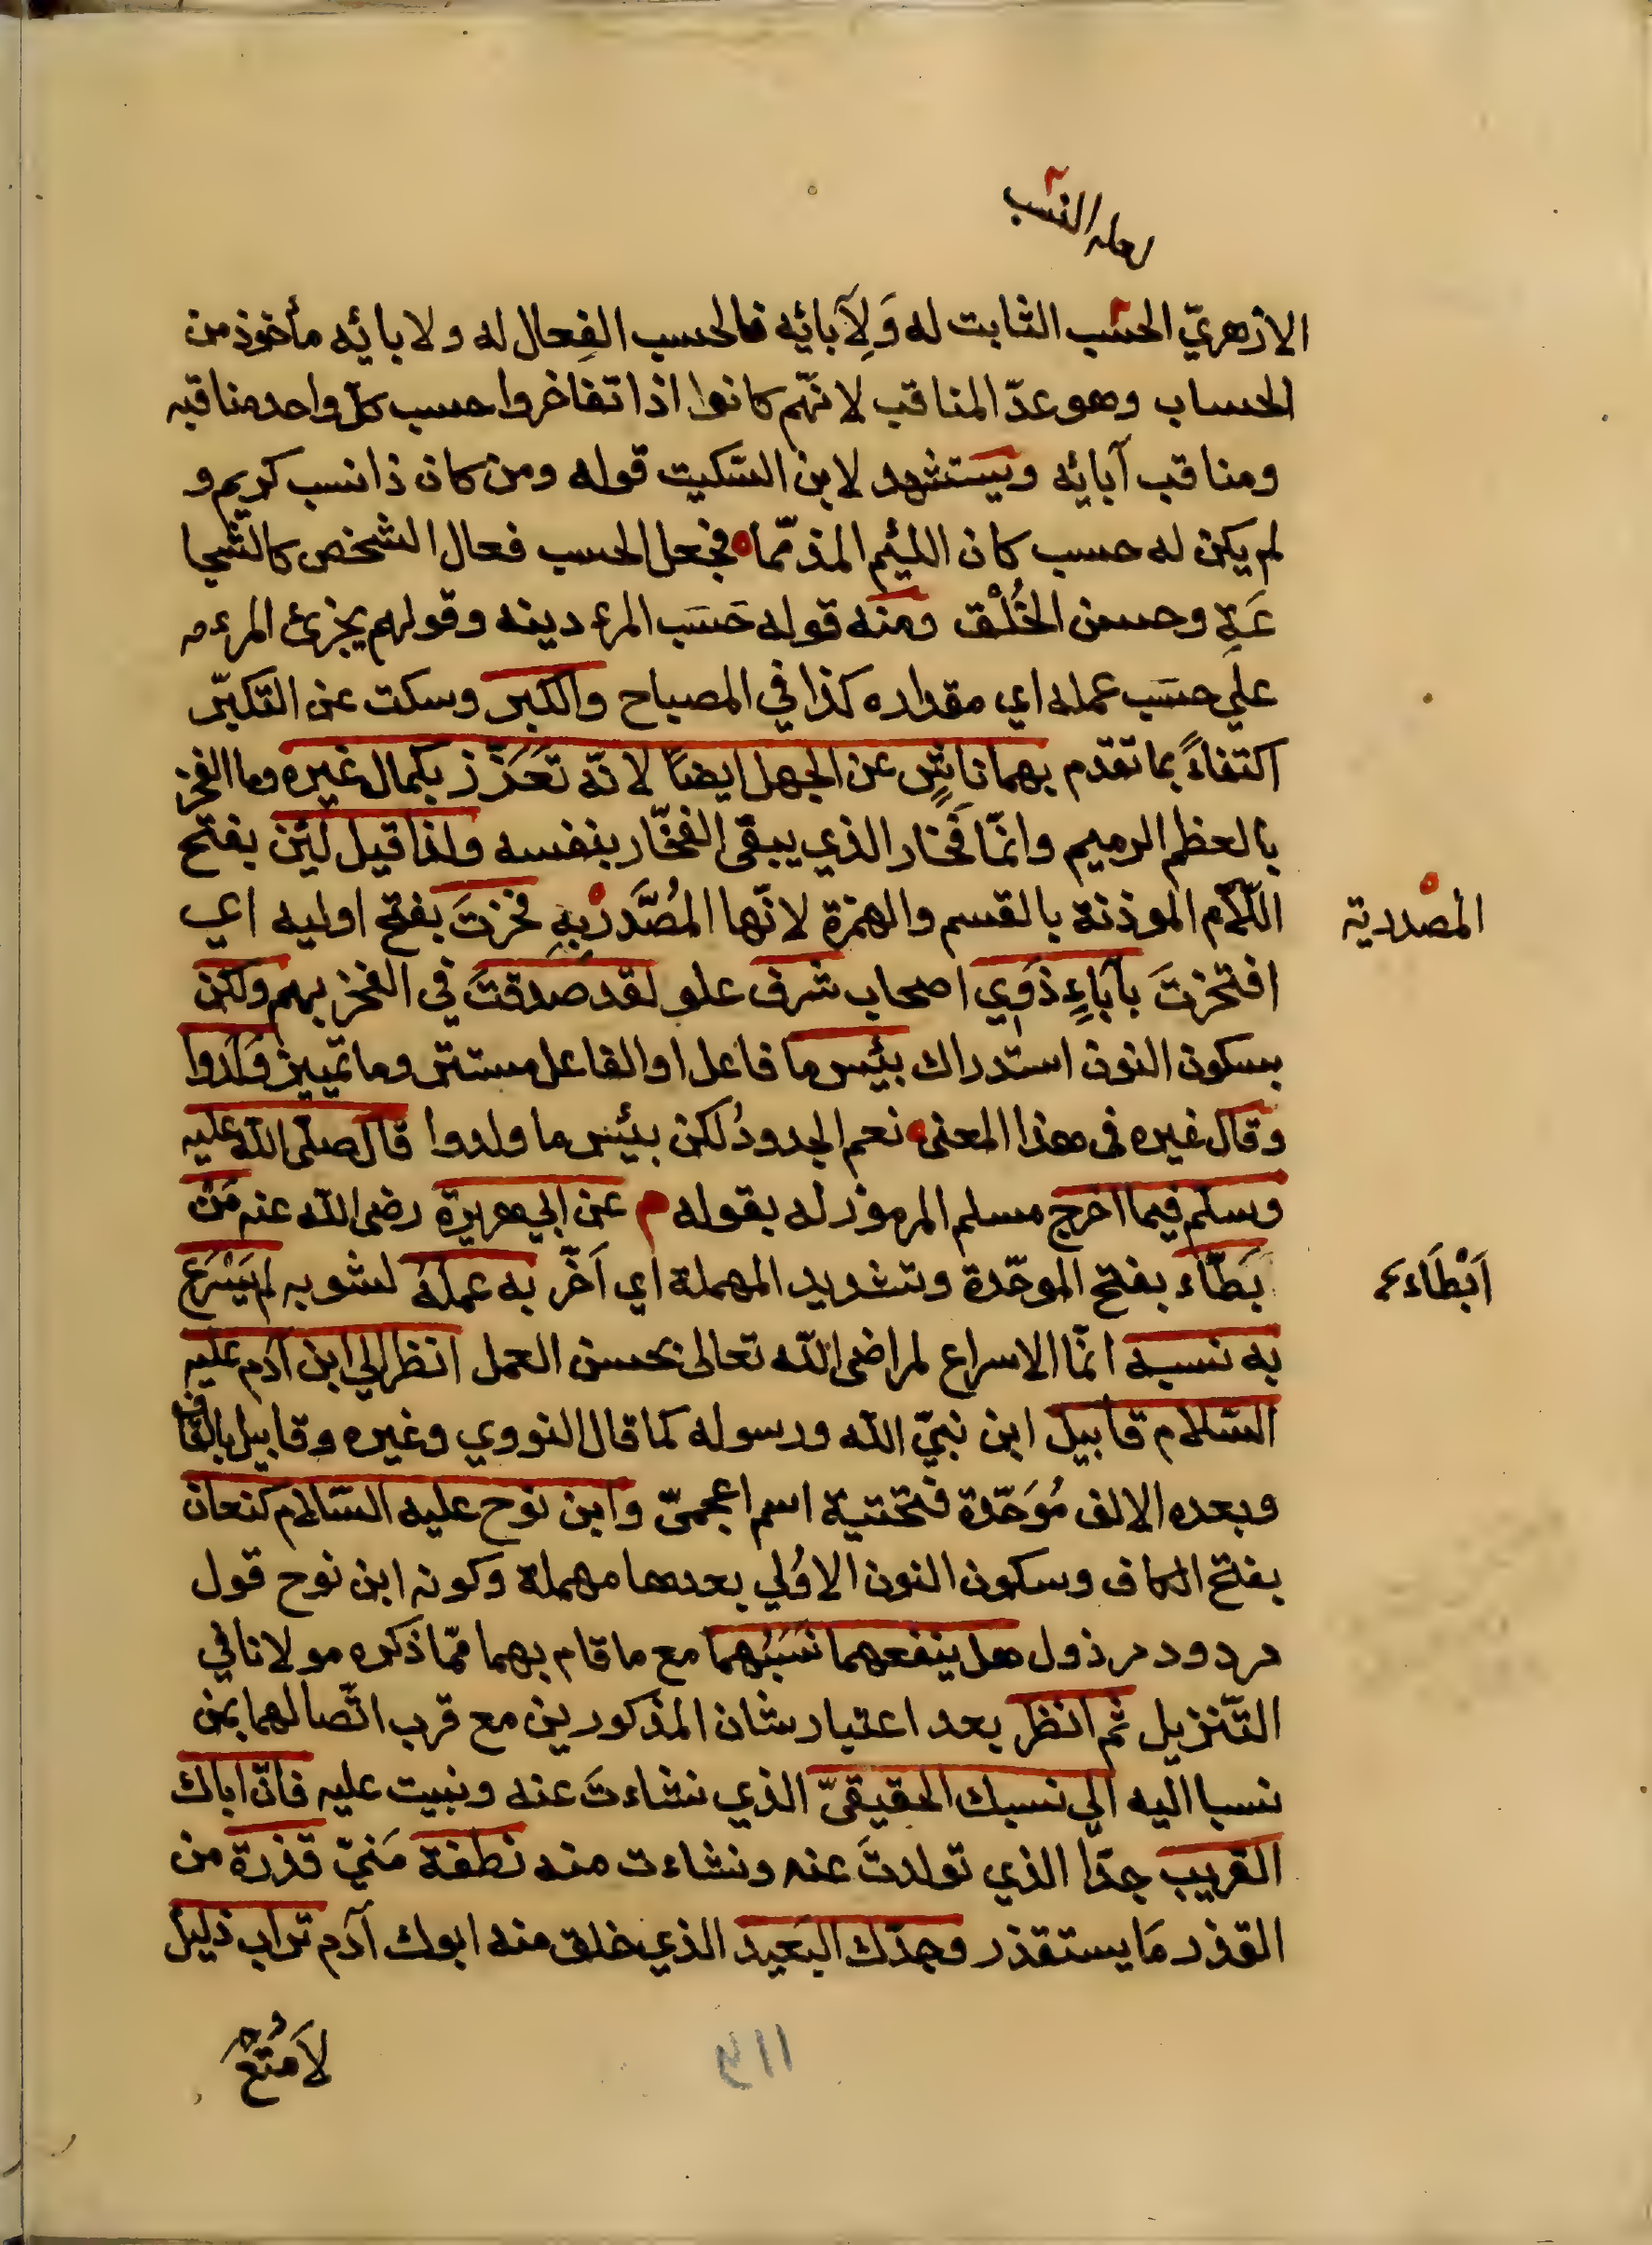 لعله النسب
الازهريّ الحسَب الثابت له وَلِآبائه فالحسب الفِعال له ولابائه مأخوذ من
الحساب وهو عدّ المناقب لانّهم كانوا اذا تفاخروا حسب كلّ واحد مناقبه
ومناقب آبائه ويستشهد لابن السّكيت قوله ومن كان ذا نسب كريم و
لم يكن له حسب كان اللئيم المذمّما فجعل الحسب فعال الشخص كالشّجا
عَةِ وحسن الخُلْق ومنه قوله حَسَب المرء دينه وقولهم يجزئ المرء
علي حسَب عمله اي مقداره كذا في المصباح والكبر وسكت عن التكبّر
اكتفاءً بما تقدّم بهما ناشٍ عن الجهل ايضاً لانّه تَعَزّز بكمال غيره وما الفخر
بالعظم الرميم وانّما فَخار الذي يبقى الفخّار بنفسه ولذا قيل لئن بفتح
اللّام الموذنة بالقسم والهمزة لانّها المُصَّدَّرُ بِهِ فخرتَ بفتح اوليه اي
المصدرية
افتخرتَ بآباءٍ ذَوِي اصحاب شرف علو لقد صدقتَ في الفخر بهم ولكن
بسكون النون استدراك بئيس ما فاعل او الفاعل مستتر وما تمييز وَلَدوا
وقال غيره في هذا المعنى نعم الجدودُ لكن بيئس ما ولدوا قال صلّى اللّه عليه
وسلم فيما اخرج مسلم المرموز له بقوله م عن ابي هريرة رضى اللّه عنه مَن
بَطّاء بفتح الموحّدة وتشديد المهملة اي اَخّر به عمله لشوبه لم يَسْرَع
اَبْطَاء
به نسبه انّما الاسراع لمراضى اللّه تعالى بحسن العمل انظر الي ابن آدم عليه
السّلام قابيل ابن نبيّ اللّه ورسوله كما قال النووي وغيره وقابيل بالقاف
وبعده الالف مُوَحّدة فتحتية اسم اعجمىّ وابن نوح عليه السّلام كنعان
بفتح الكاف وسكون النون الاوُلي بعدها مهملة وكونه ابن نوح قول
مردود مرذول هل ينفعهما نَسَبُهما مع ما قام بهما ممّا ذكره مولانا في
التّنزيل ثم انظر بعد اعتبار شان المذكورين مع قرب اتّصالهما بمن
نسبا اليه الي نسبك الحقيقىّ الذي نشاءتَ عنه وبنيت عليه فانّ اباك
القريب جدّا الذي تولدتَ عنه ونشاءت منه نطفة مَنيّ قذرة من
القذر مَا يستقذر وجدّك البَعيد الذي خلق منه ابوك آدم تراب ذليل
١١٤